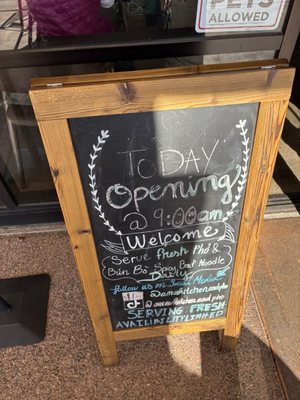 PETS
ALLOWED
ToDAY
Opening
@ 9:00am
Welcome
Serve Fresh Phở &
Bún Bò Spicy Beef Noodle
Daily
follow us on Social Media
SERVING FRESH
AVAILIBILITY LIMITED